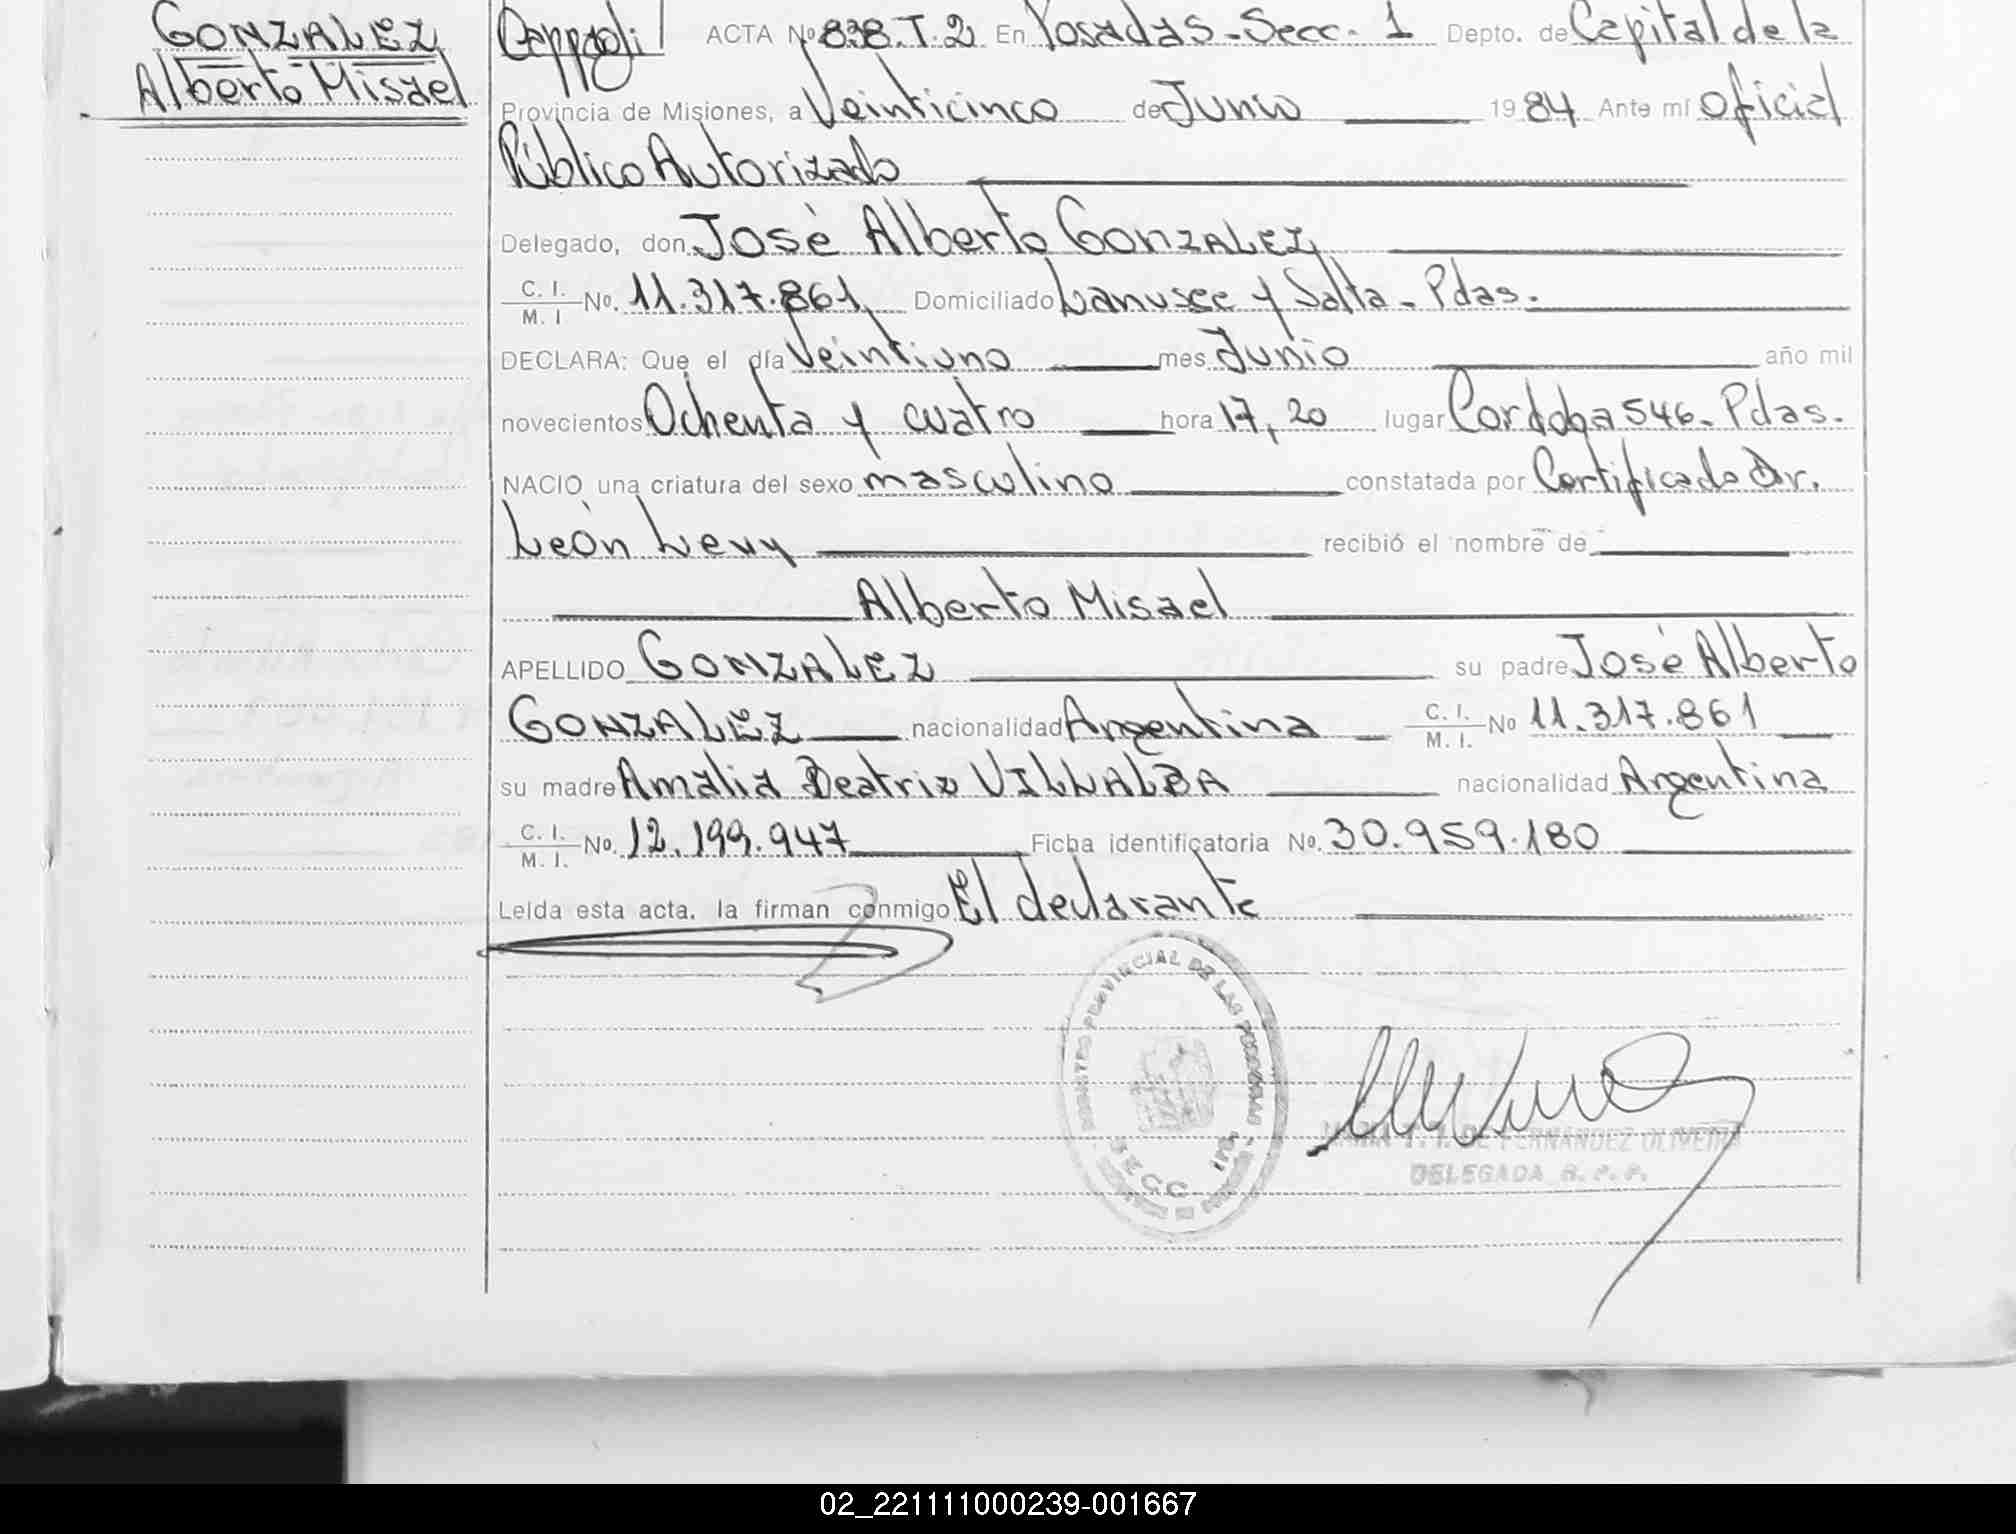 GONZALEZ
Alberto Misael
ACTA Nº 838.T.2 En Posadas-Secc. 1 Depto. de Capital de la
Provincia de Misiones, a Veinticinco de Junio 1984 Ante mí Oficial
Público Autorizado
Delegado, don José Alberto GONZALEZ
C. I. / M. I No. 11.317.861 Domiciliado Lanusse y Salta - Pdas.
DECLARA: Que el día Veintiuno mes Junio año mil
novecientos Ochenta y cuatro hora 17,20 lugar Cordoba 546- Pdas.
NACIO una criatura del sexo masculino constatada por Certificado Dr.
León Levy recibió el nombre de
Alberto Misael
APELLIDO GONZALEZ su padre José Alberto
GONZALEZ nacionalidad Argentina C. I. / M. I. No 11.317.861
su madre Amalia Beatriz VILLALBA nacionalidad Argentina
C. I. / M. I. No. 12.199.947 Ficha identificatoria No. 30.959.180
Leída esta acta, la firman conmigo El declarante
REGISTRO PROVINCIAL DE LAS PERSONAS
SECC. 1ra.
DE FERNANDEZ OLIVEIRA
DELEGADA R. P. P.
02_221111000239-001667